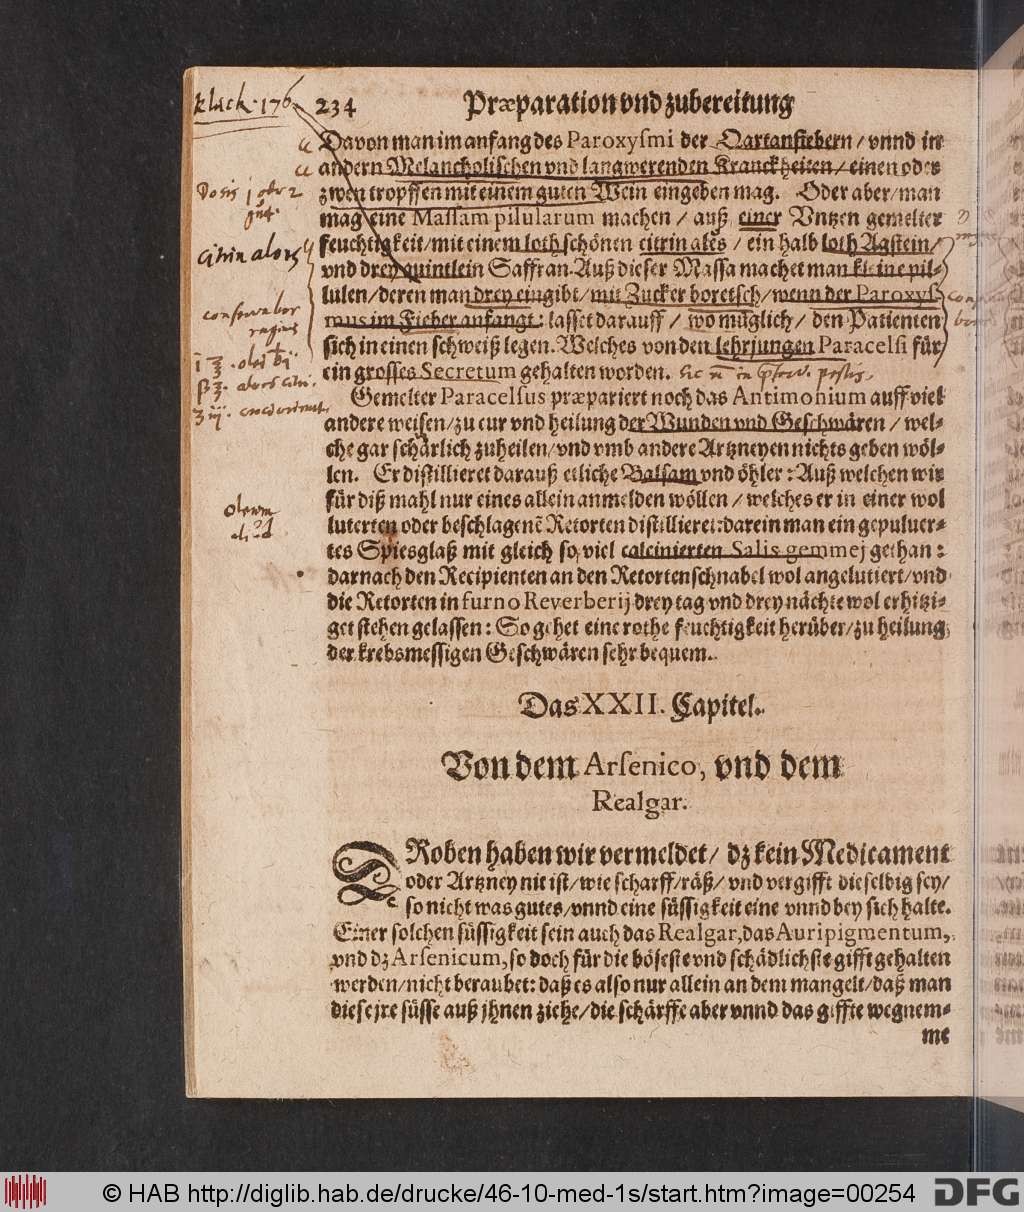 234 Præparation vnd zubereitung
Davon man im anfang des Paroxyſmi der Qartanfiebern / vnnd in
andern Melancholischen vnd langwerenden Kranckheiten / einen oder
zwen tropffen mit einem guten Wein eingeben mag. Oder aber / man
mag eine Maſſam pilularum machen / auß einer Vntzen gemelter
feuchtigkeit / mit einem loth schönen citrin ales / ein halb loth Agstein /
vnd drey quintlein Saffran. Auß dieser Massa machet man kleine pil-
lulen / deren man drey eingibt / mit Zucker boretsch / wenn der Paroxyſ-
mus im Fieber anfangt: lasset darauff / wo müglich / den Patienten
sich in einen schweiß legen. Welches von den lehrjungen Paracelſi für
ein grosses Secretum gehalten worden.
Gemelter Paracelſus præpariert noch das Antimonium auff viel
andere weisen / zu cur vnd heilung der Wunden vnd Geschwären / wel-
che gar schärlich zuheilen / vnd vmb andere Artzneyen nichts geben wöl-
len. Er distillieret darauß etliche Balsam vnd öhler: Auß welchen wir
für diß mahl nur eines allein anmelden wöllen / welches er in einer wol
luterten oder beschlagenẽ Retorten distillieret: darein man ein gepuluer-
tes Spiesglaß mit gleich so viel calcinierten Salis gemmej gethan:
darnach den Recipienten an den Retortenschnabel wol angelutiert / vnd
die Retorten in furno Reverberij drey tag vnd drey nächte wol erhitzi-
get stehen gelassen: So gehet eine rothe feuchtigkeit herüber / zu heilung
der krebsmessigen Geschwären sehr bequem.
Das XXII. Capitel.
Von dem Arſenico, vnd dem
Realgar.
DRoben haben wir vermeldet / dz kein Medicament
oder Artzney nit ist / wie scharff / räß / vnd vergifft dieselbig sey /
so nicht was gutes / vnnd eine süssigkeit eine vnnd bey sich halte.
Einer solchen süssigkeit sein auch das Realgar, das Auripigmentum,
vnd dz Arſenicum, so doch für die böseste vnd schädlichste gifft gehalten
werden / nicht beraubet: daß es also nur allein an dem mangelt / daß man
diese jre süsse auß jhnen ziehe / die schärffe aber vnnd das giffte wegnem-
me
citrin aloes
© HAB http://diglib.hab.de/drucke/46-10-med-1s/start.htm?image=00254
DFG